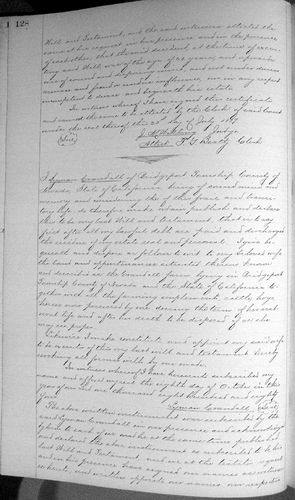 128
Will and Testament, and the said witnesses attested the
same at her request in her presence and in the presence
of each other, that the said decedent at the time of execu-
ting said Will, was of the age of years, and upwards
was of sound and disposing mind and not under duress
menace and fraud or undue influence, nor in any respect
incompetent to devise and bequeath her estate.
In witness whereof I have signed this certificate
and caused the same to be attested by the Clerk of said Court
under the seal thereof this day of July 18
Judge
Attest Clerk
I Lyman Crandall of Bridgeport Township County of
Nevada State of California being of sound mind and
memory and considering the of this frail and transi-
tory life do therefore make publish and declare
this to be my last Will and testament, that is to say
first after all my lawful debts are paid and discharged
the residue of my estate real and personal. I give be-
queath and dispose as follows to wit to my beloved wife
the land and known
and described as the Crandall farm lying in Bridgeport
Township County of Nevada and the State of California to-
gether with all the farming implements cattle, hogs
horses now possessed by me during the term of her nat-
ural life and after her death to be disposed of as she
may see proper.
Likewise I make constitute and appoint my said wife
to be of this my last will and testament hereby
revoking all former wills by me made.
In witness whereof I have hereunto subscribed my
name and affixed my seal the eighth day of October in the
year of our Lord one thousand eight hundred and eighty
four
Lyman Crandall
The above written instrument was subscribed by the
said Lyman Crandall in our presence and acknowledged
by him to each of us and he at the same time published
and declared the above instrument so subscribed to be his
last Will and Testament, and we at the testator's request
and in his presence have signed our names as witnesses
hereto, and written opposite our names our respective